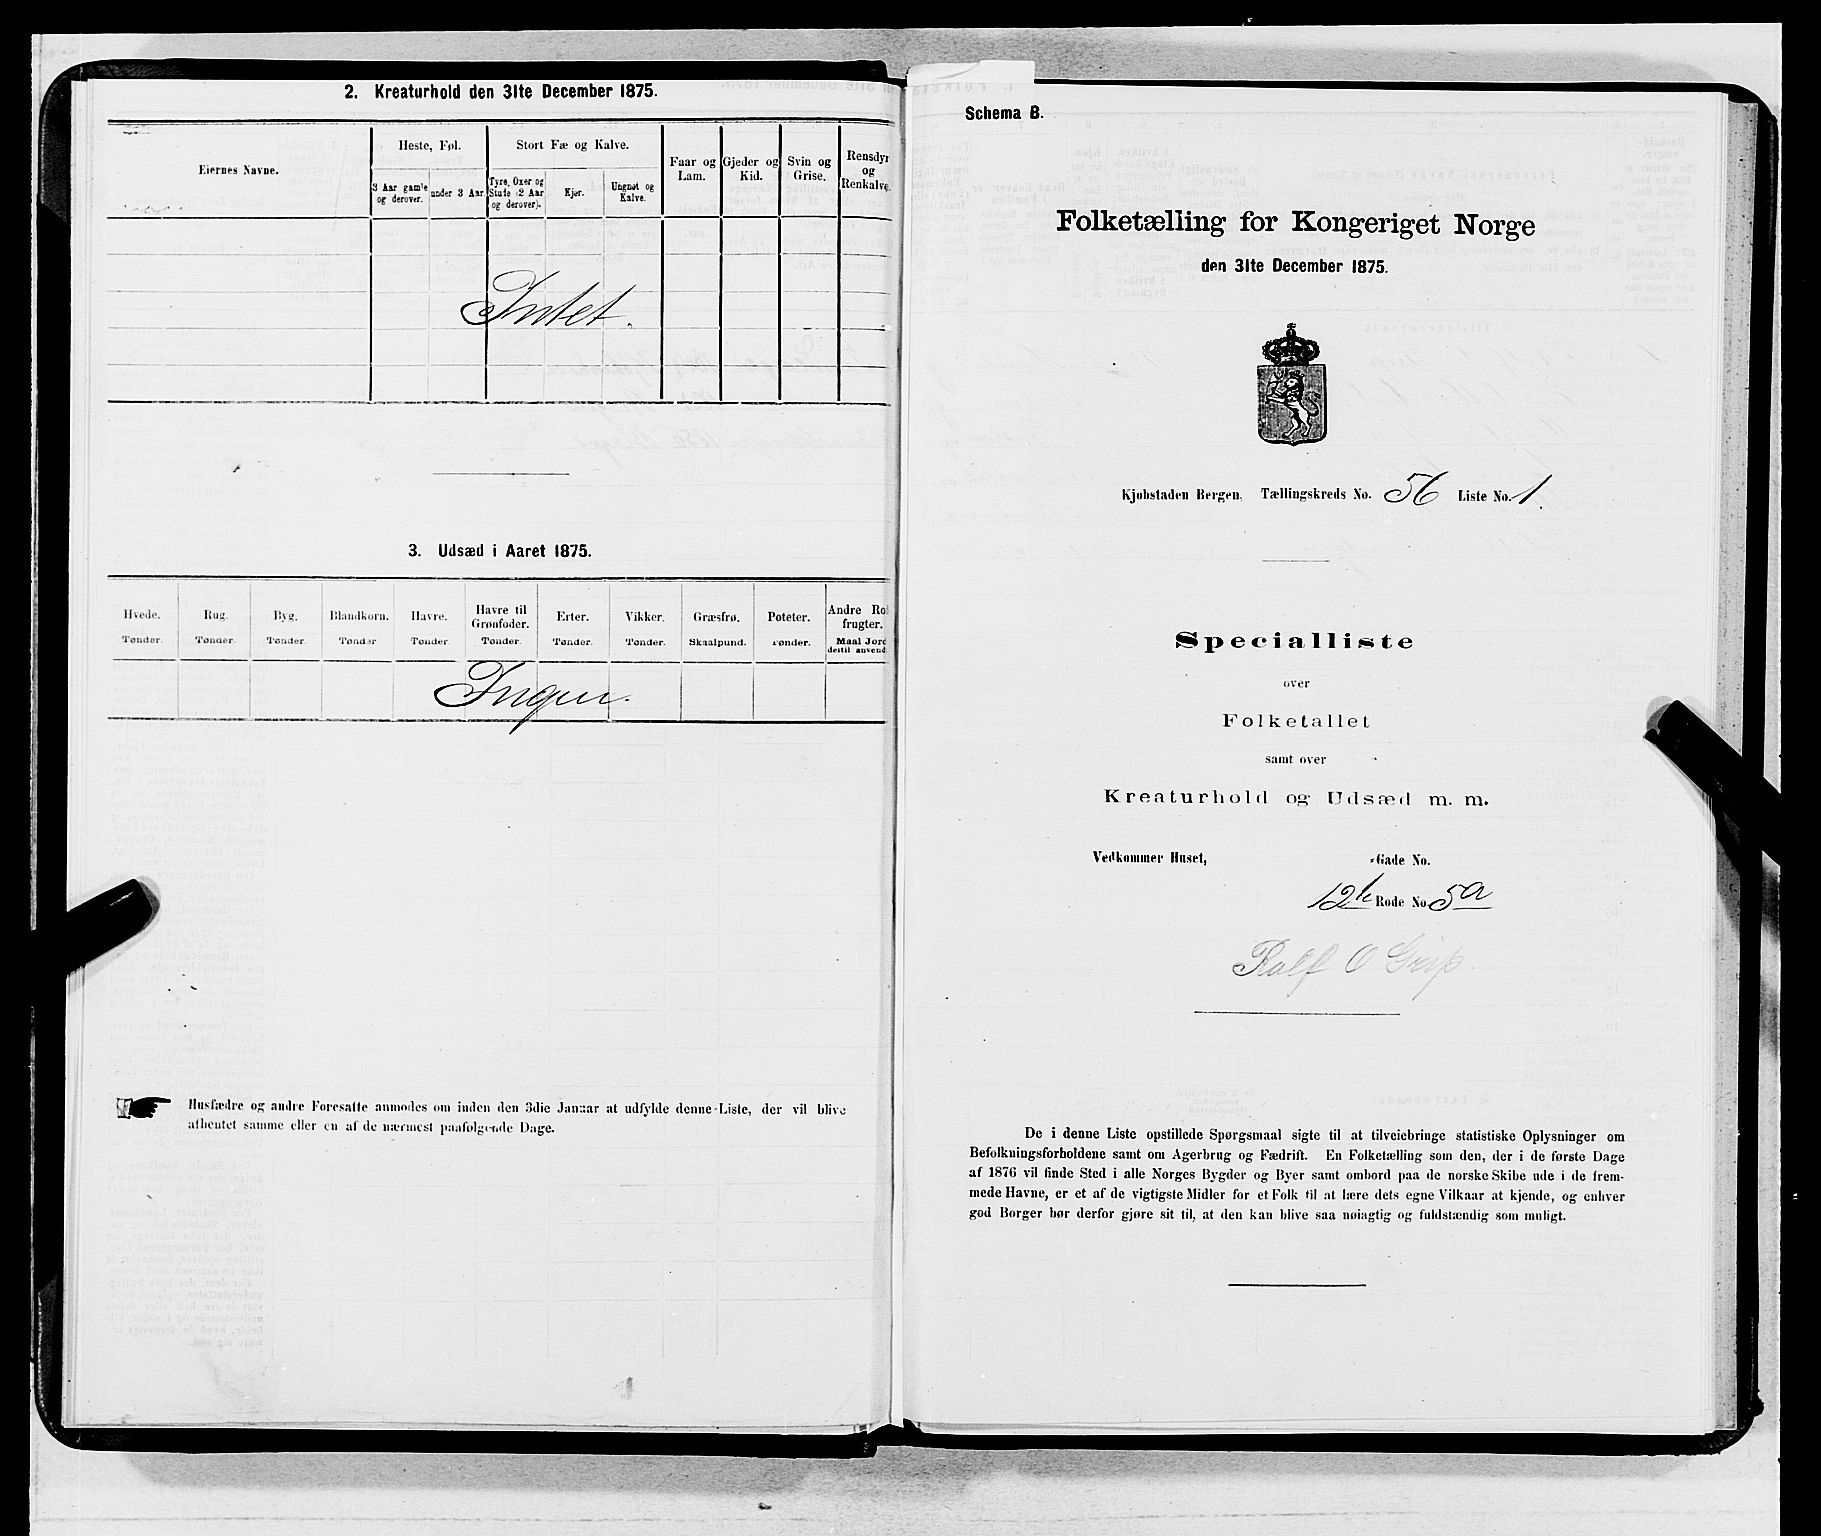 2. Kreaturhold den 31te December 1875.
Eiernes Navne.
Heste, Føl.
Stort Fæ og Kalve.
Faar og Lam.
Gjeder og Kid.
Svin og Grise.
Rensdyr og Renkalve.
3 Aar gamle og derover.
under 3 Aar.
Tyre, Oxer og Stude (2 Aar og derover).
Kjør.
Ungnøt og Kalve.
Intet.
3. Udsæd i Aaret 1875.
Hvede. Rug. Byg. Blandkorn. Havre. Havre til Grønfoder. Erter. Vikker. Græsfrø. Poteter. Andre Ro frugter.
Tønder. Tønder. Tønder. Tønder Tønder. Tønder. Tønder. Tønder. Skaalpund. Tønder. Maal Jord dertil anvend
Ingen.
Husfædre og andre Foresatte anmodes om inden den 3die Januar at udfylde denne Liste, der vil blive
afhentet samme eller en af de nærmest paafølgende Dage.
Schema B.
Folketælling for Kongeriget Norge
den 31te December 1875.
Kjøbstaden Bergen, Tællingskreds No. 56 Liste No. 1.
Specialliste
over
Folketallet
samt over
Kreaturhold og Udsæd m. m.
Vedkommer Huset, -Gade No.
12te Rode No 5a
Rolf O
De i denne Liste opstillede Spørgsmaal sigte til at tilveiebringe statistiske Oplysninger om
Befolkningsforholdene samt om Agerbrug og Fædrift. En Folketælling som den, der i de første Dage
af 1876 vil finde Sted i alle Norges Bygder og Byer samt ombord paa de norske Skibe ude i de frem-
mede Havne, er et af de vigtigste Midler for et Folk til at lære dets egne Vilkaar at kjende, og enhver
god Borger bør derfor gjøre sit til, at den kan blive saa nøiagtig og fuldstændig som muligt.